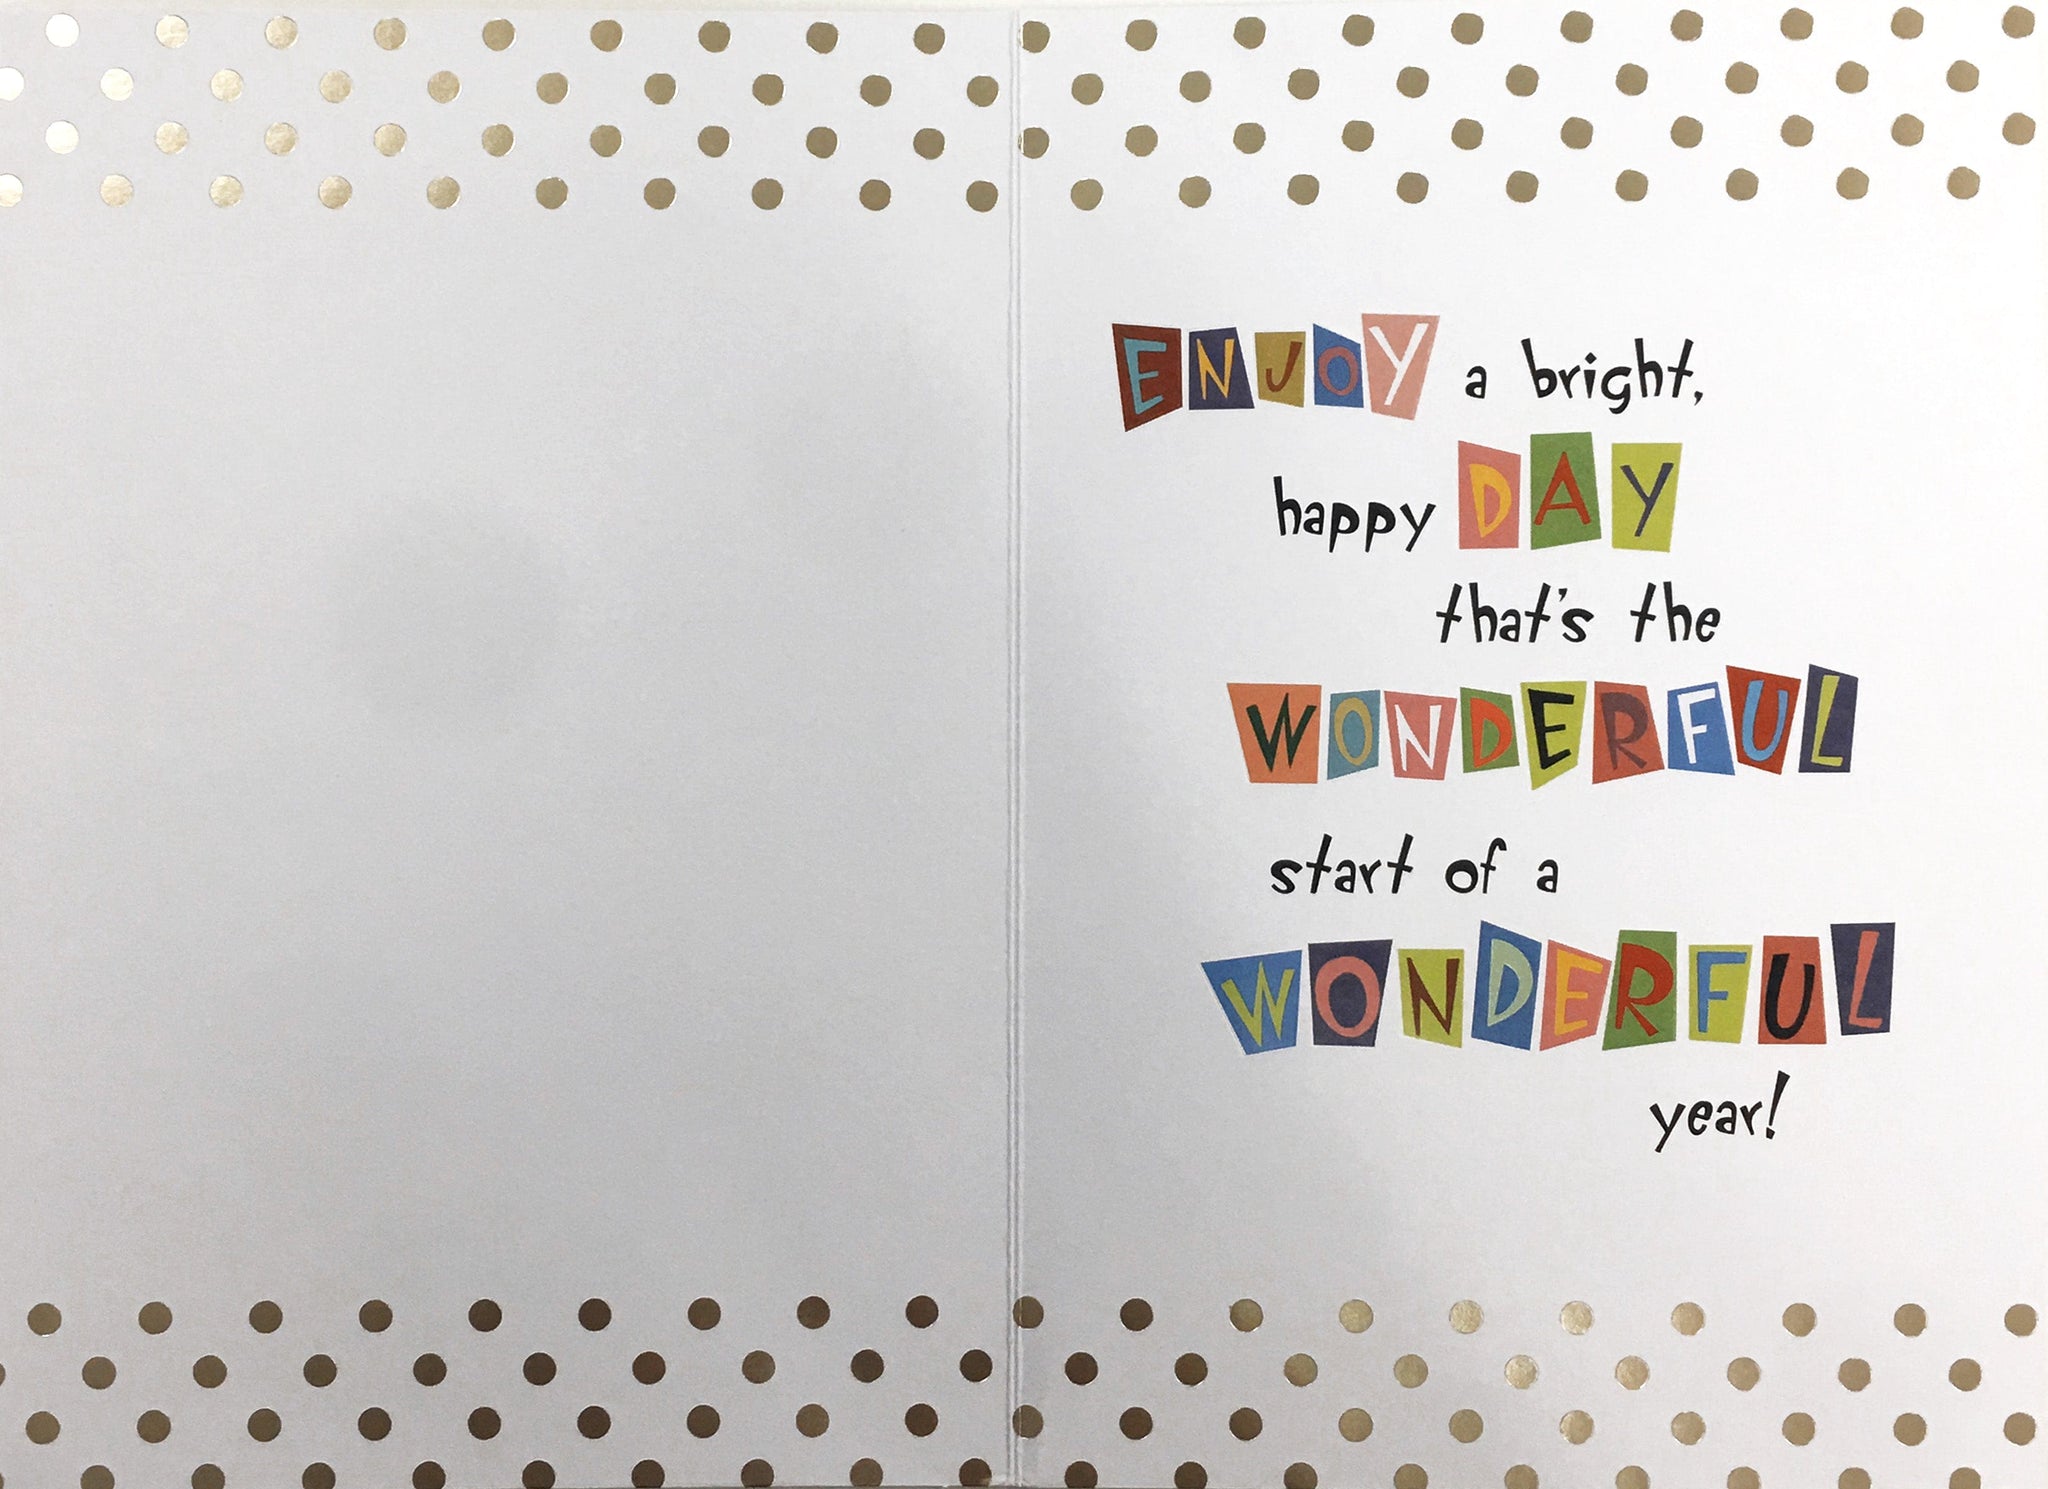 ENJOY a bright,
happy DAY
that's the
WONDERFUL
start of a
WONDERFUL
year!